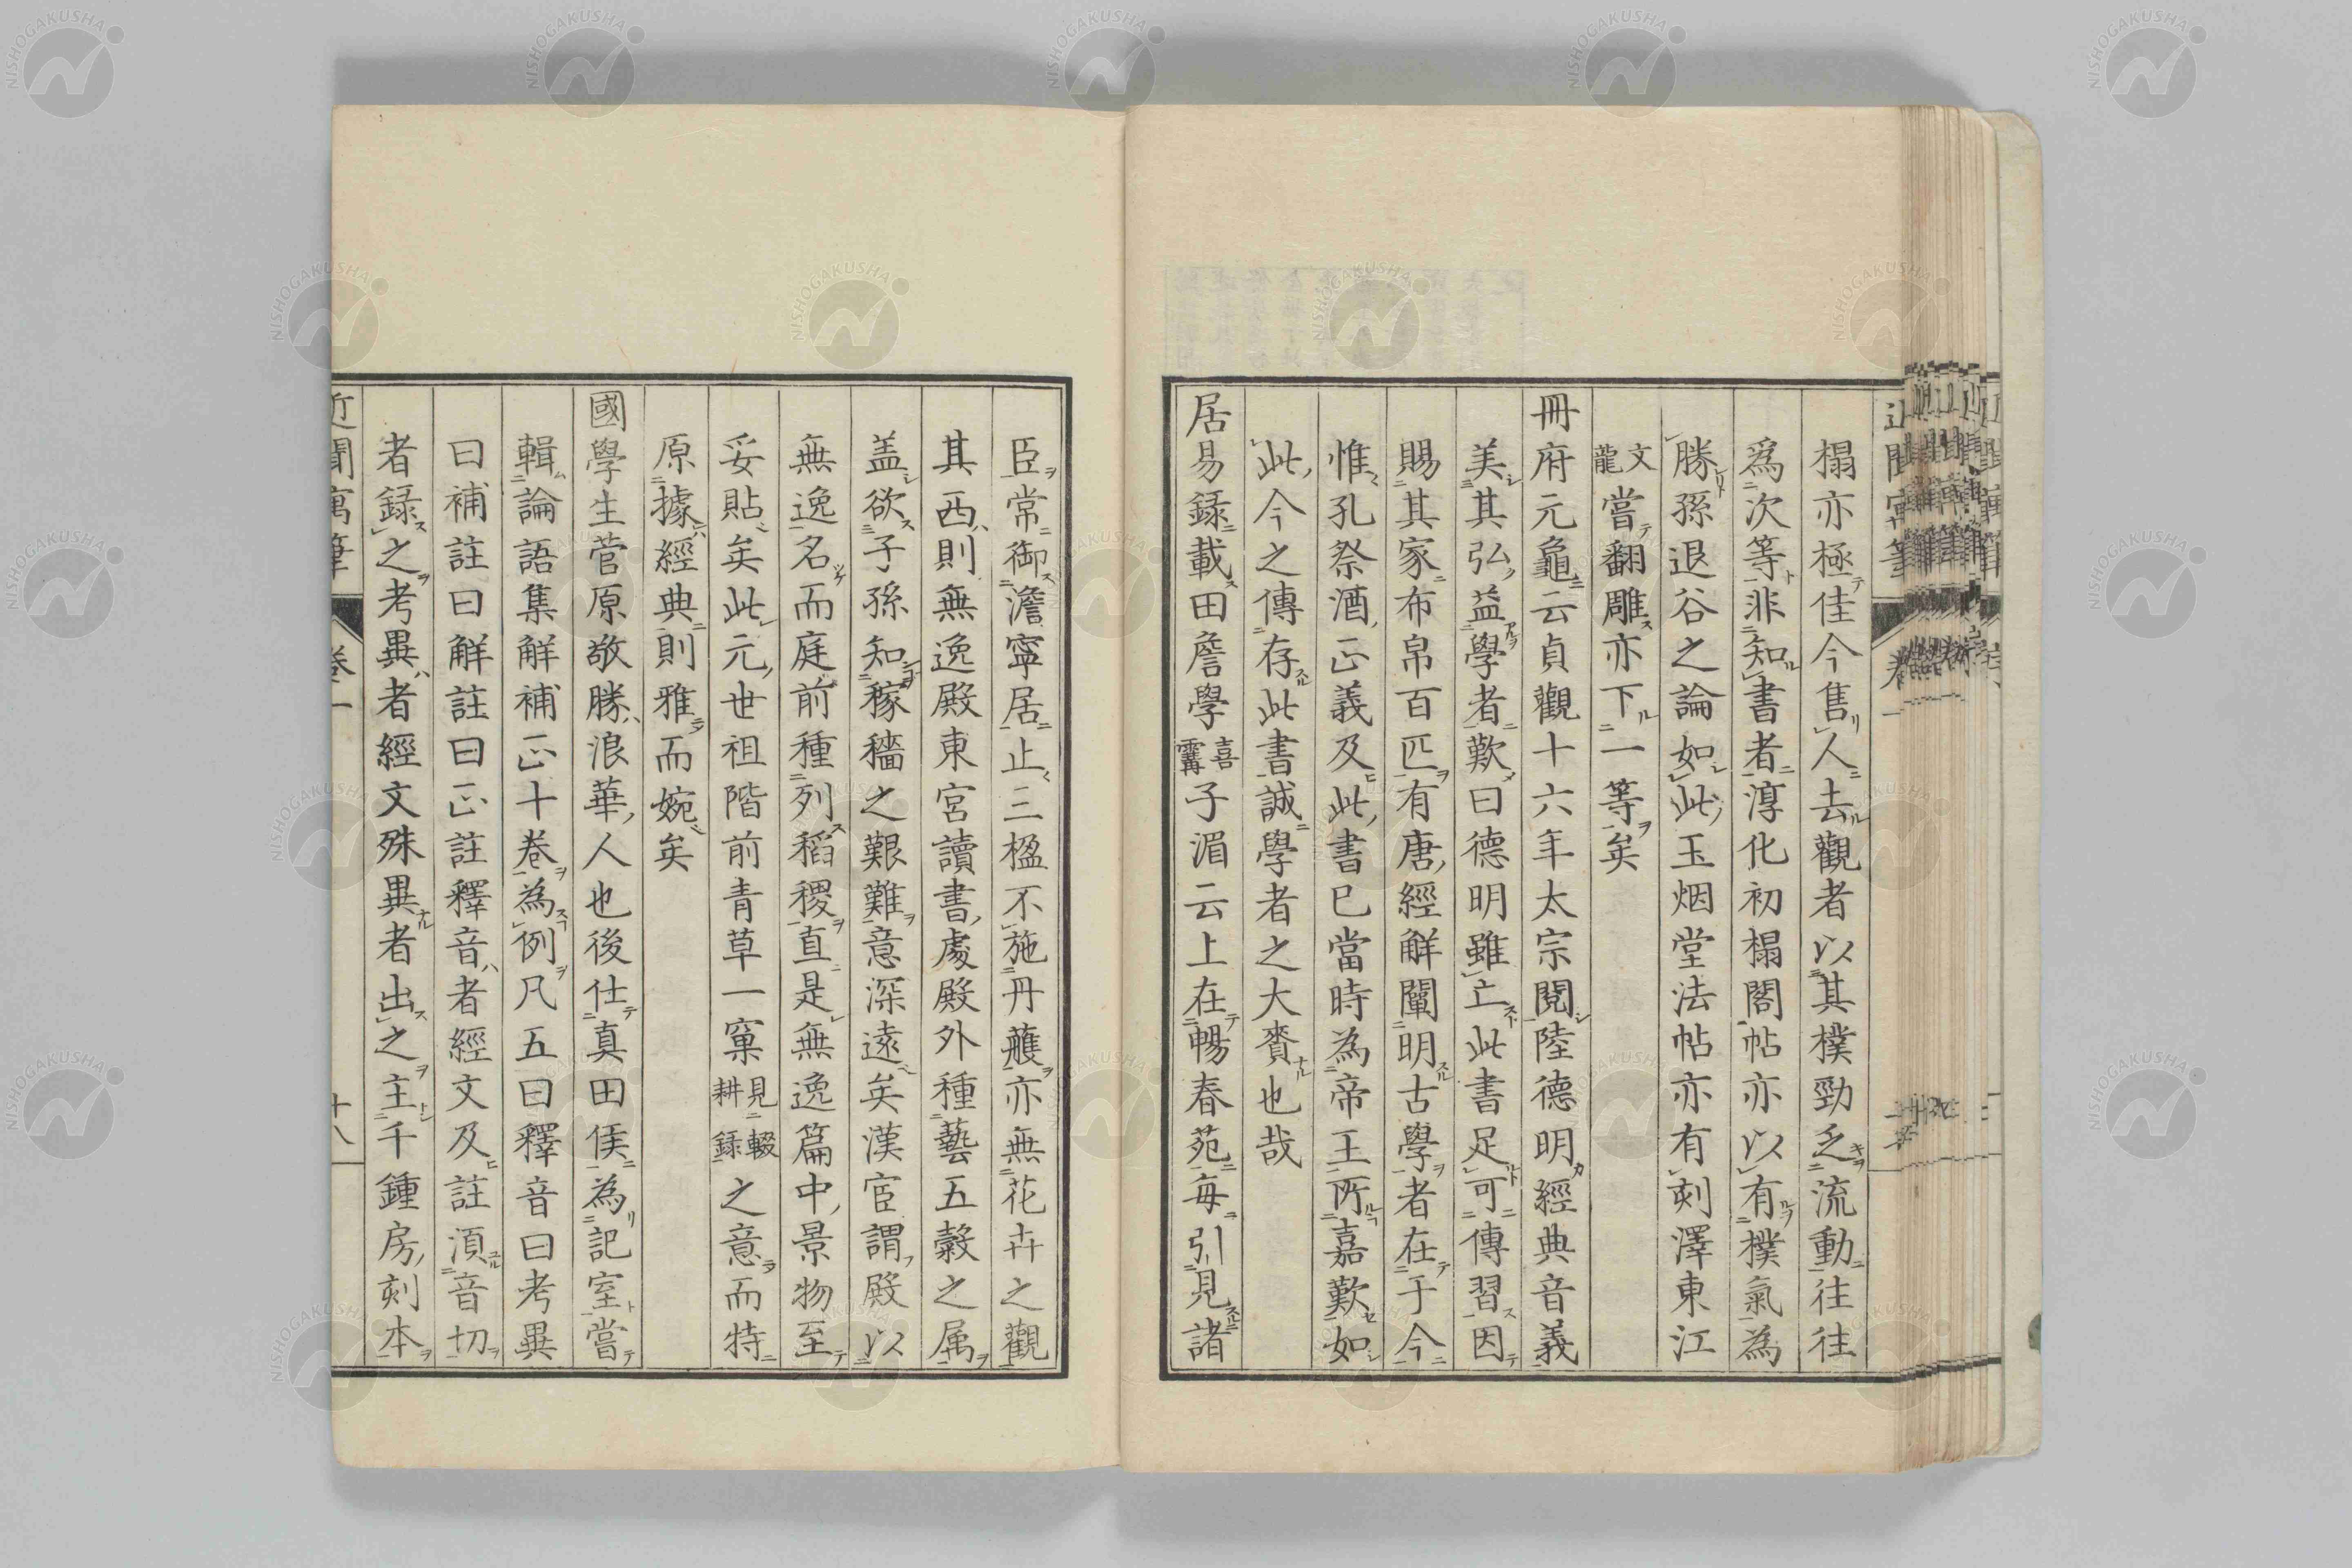 搨亦極佳今售人去觀者以其樸勁乏流動往往
爲次等非知書者淳化初搨閣帖亦以有樸氣為
勝孫退谷之論如此玉烟堂法帖亦有刻澤東江
文龍嘗翻雕亦下一等矣
冊府元龜云貞觀十六年太宗閱陸德明經典音義
美其弘益學者歎曰德明雖亡此書足可傳習因
賜其家布帛百匹有唐經解闡明古學者在于今
惟孔祭酒正義及此書已當時為帝王所嘉歎如
此今之傳存此書誠學者之大賚也哉
居易録載田詹學喜𩆩子湄云上在暢春苑每引見諸
臣常御澹寧居止三楹不施丹雘亦無花卉之觀
其西則無逸殿東宮讀書處殿外種藝五穀之属
盖欲子孫知稼穡之艱難意深遠矣漢宦謂殿以
無逸名而庭前種列稻稷直是無逸篇中景物至
妥貼矣此元世祖階前青草一窠見耕輟録之意而特
原據經典則雅而婉矣
國學生菅原敬勝浪華人也後仕真田侯為記室嘗
輯論語集解補正十卷為例凡五曰釋音曰考異
曰補註曰解註曰正註釋音者經文及註須音切
者録之考異者經文殊異者出之主千鍾房刻本
近聞寓筆 卷一 十八
NISHOGAKUSHA